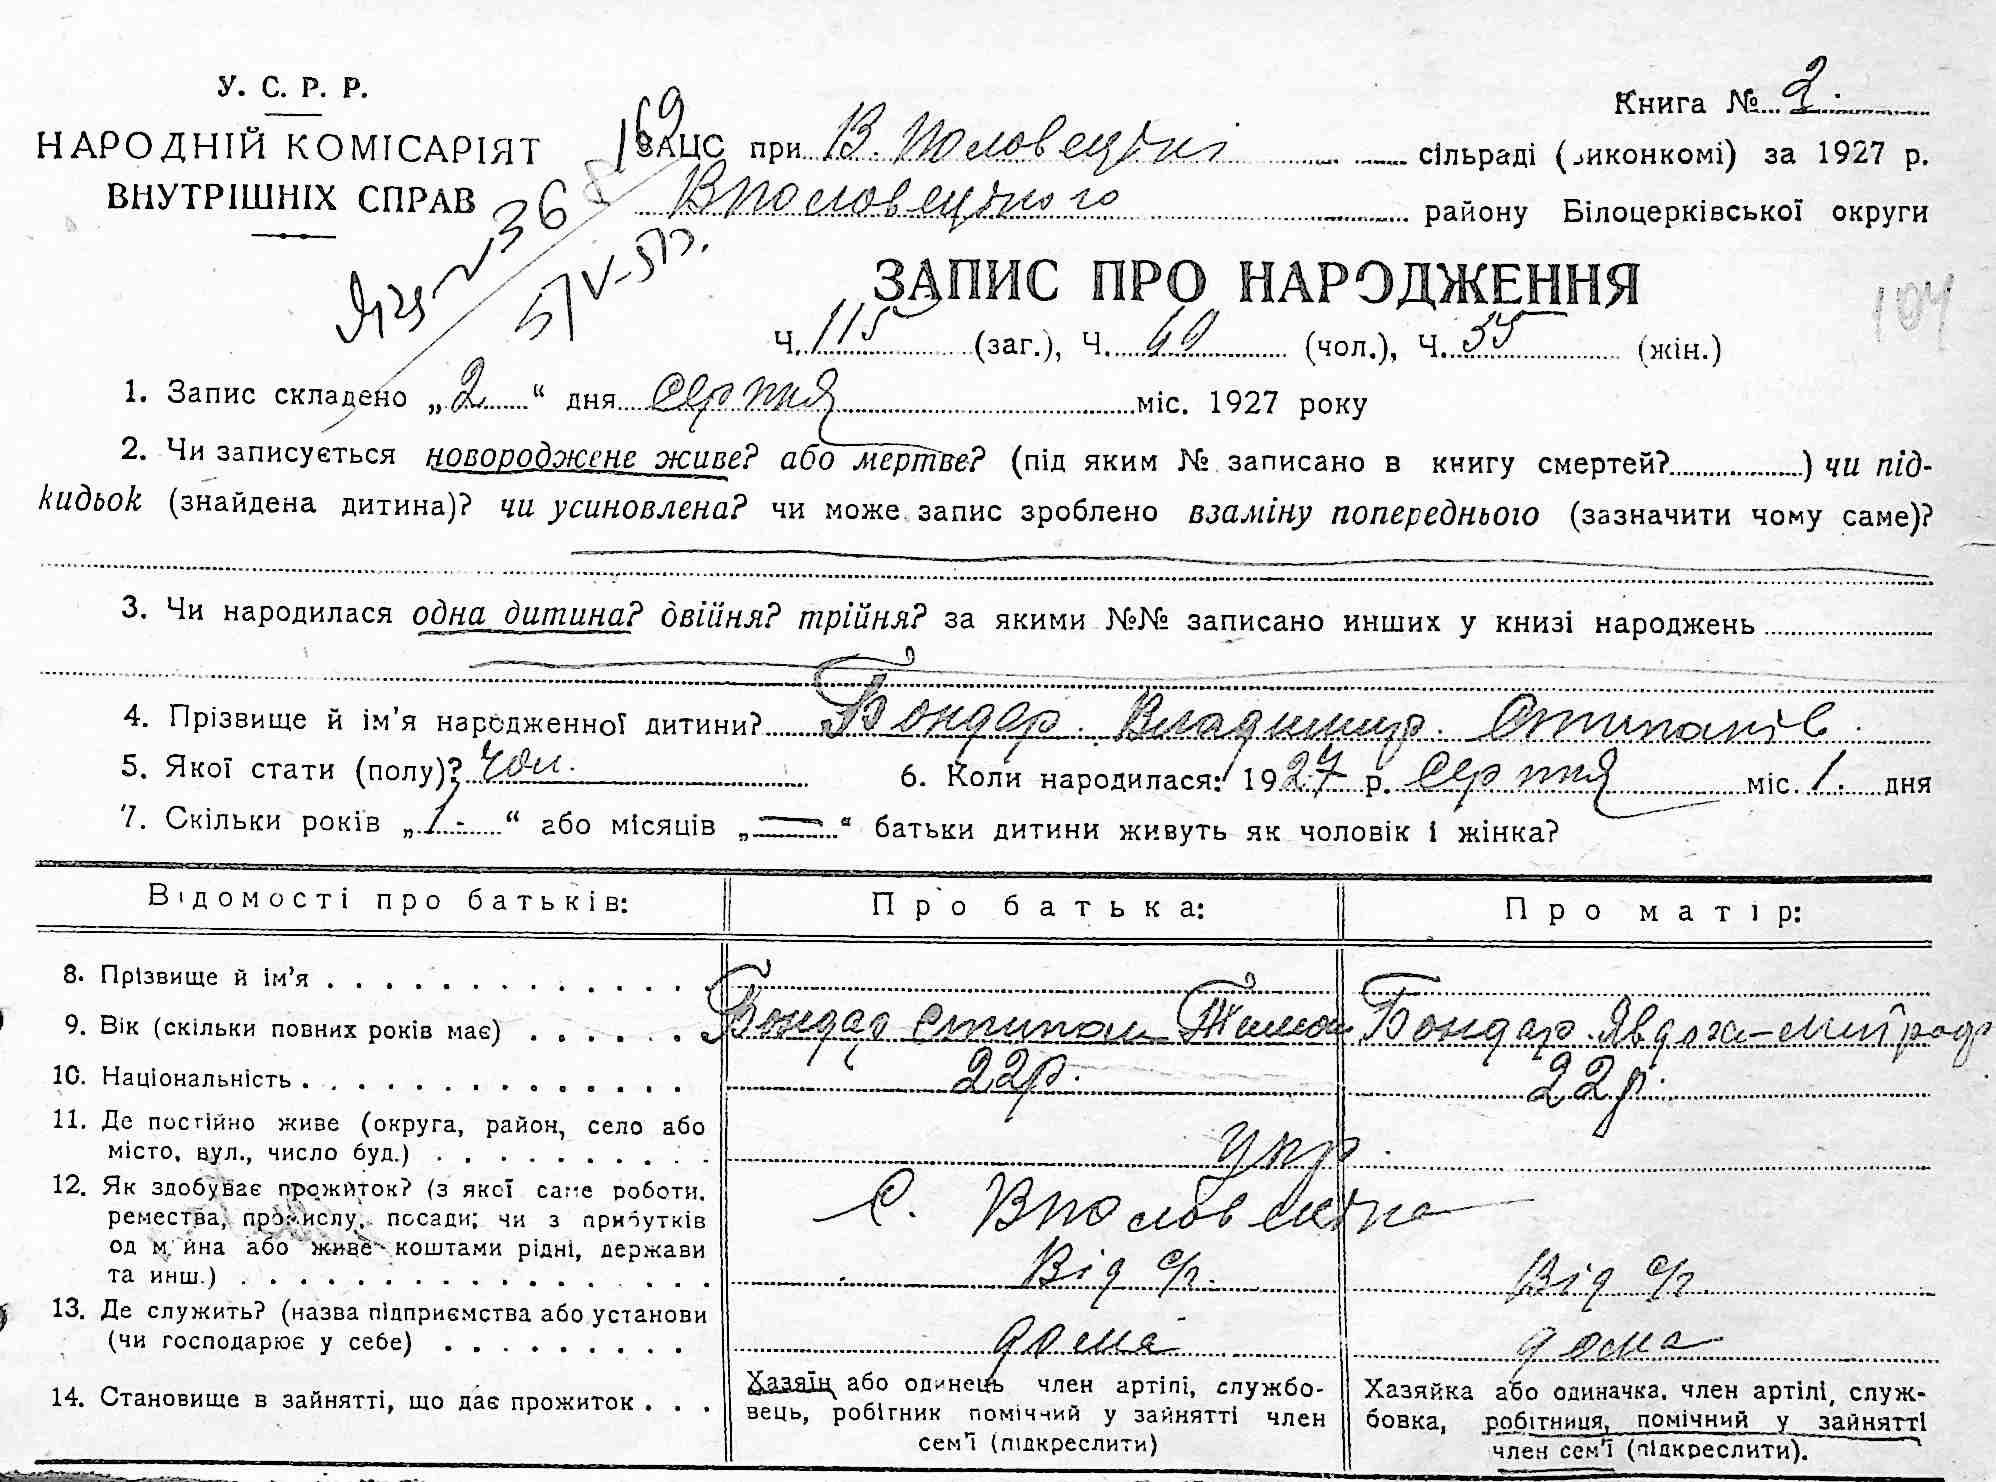 У. С. Р. Р.
НАРОДНІЙ КОМІСАРІЯТ
ВНУТРІШНІХ СПРАВ
Книга № 2.
169
ЗАЦС при В. Половецькі сільраді (виконкомі) за 1927 р.
Вполовецького району Білоцерківської округи
368
5/V-5
ЗАПИС ПРО НАРОДЖЕННЯ
104
Ч. 115 (заг.), Ч. 60 (чол.), Ч. 55 (жін.)
1. Запис складено „2“ дня серпня міс. 1927 року
2. Чи записується новороджене живе? або мертве? (під яким № записано в книгу смертей?) чи під-
кидьок (знайдена дитина)? чи усиновлена? чи може запис зроблено взаміну попереднього (зазначити чому саме)?
3. Чи народилася одна дитина? двійня? трійня? за якими №№ записано инших у книзі народжень
4. Прізвище й ім’я народженної дитини? Бондар. Владимир. Стипанів.
5. Якої стати (полу)? чол. 6. Коли народилася: 1927 р. серпня міс. 1. дня
7. Скільки років „1-“ або місяців „—“ батьки дитини живуть як чоловік і жінка?
Відомості про батьків: Про батька: Про матір:
8. Прізвище й ім’я
9. Вік (скільки повних років має) Бондар Стипан Тимош Бондар Явдоха
10. Національність 22р. 22р.
11. Де постійно живе (округа, район, село або
місто, вул., число буд.) укр.
12. Як здобуває прожиток? (з якої саме роботи,
ремества, промислу, посади; чи з прибутків С. Вполовецька
од майна або живе коштами рідні, держави
та инш.) Від с/г. Від с/г.
13. Де служить? (назва підприємства або установи
(чи господарює у себе) дома дома
14. Становище в зайнятті, що дає прожиток
Хазяїн або одинець член артілі, службо-
вець, робітник помічний у зайнятті член
сем’ї (підкреслити)
Хазяйка або одиначка, член артілі, служ-
бовка, робітниця, помічний у зайнятті
член сем’ї (підкреслити).